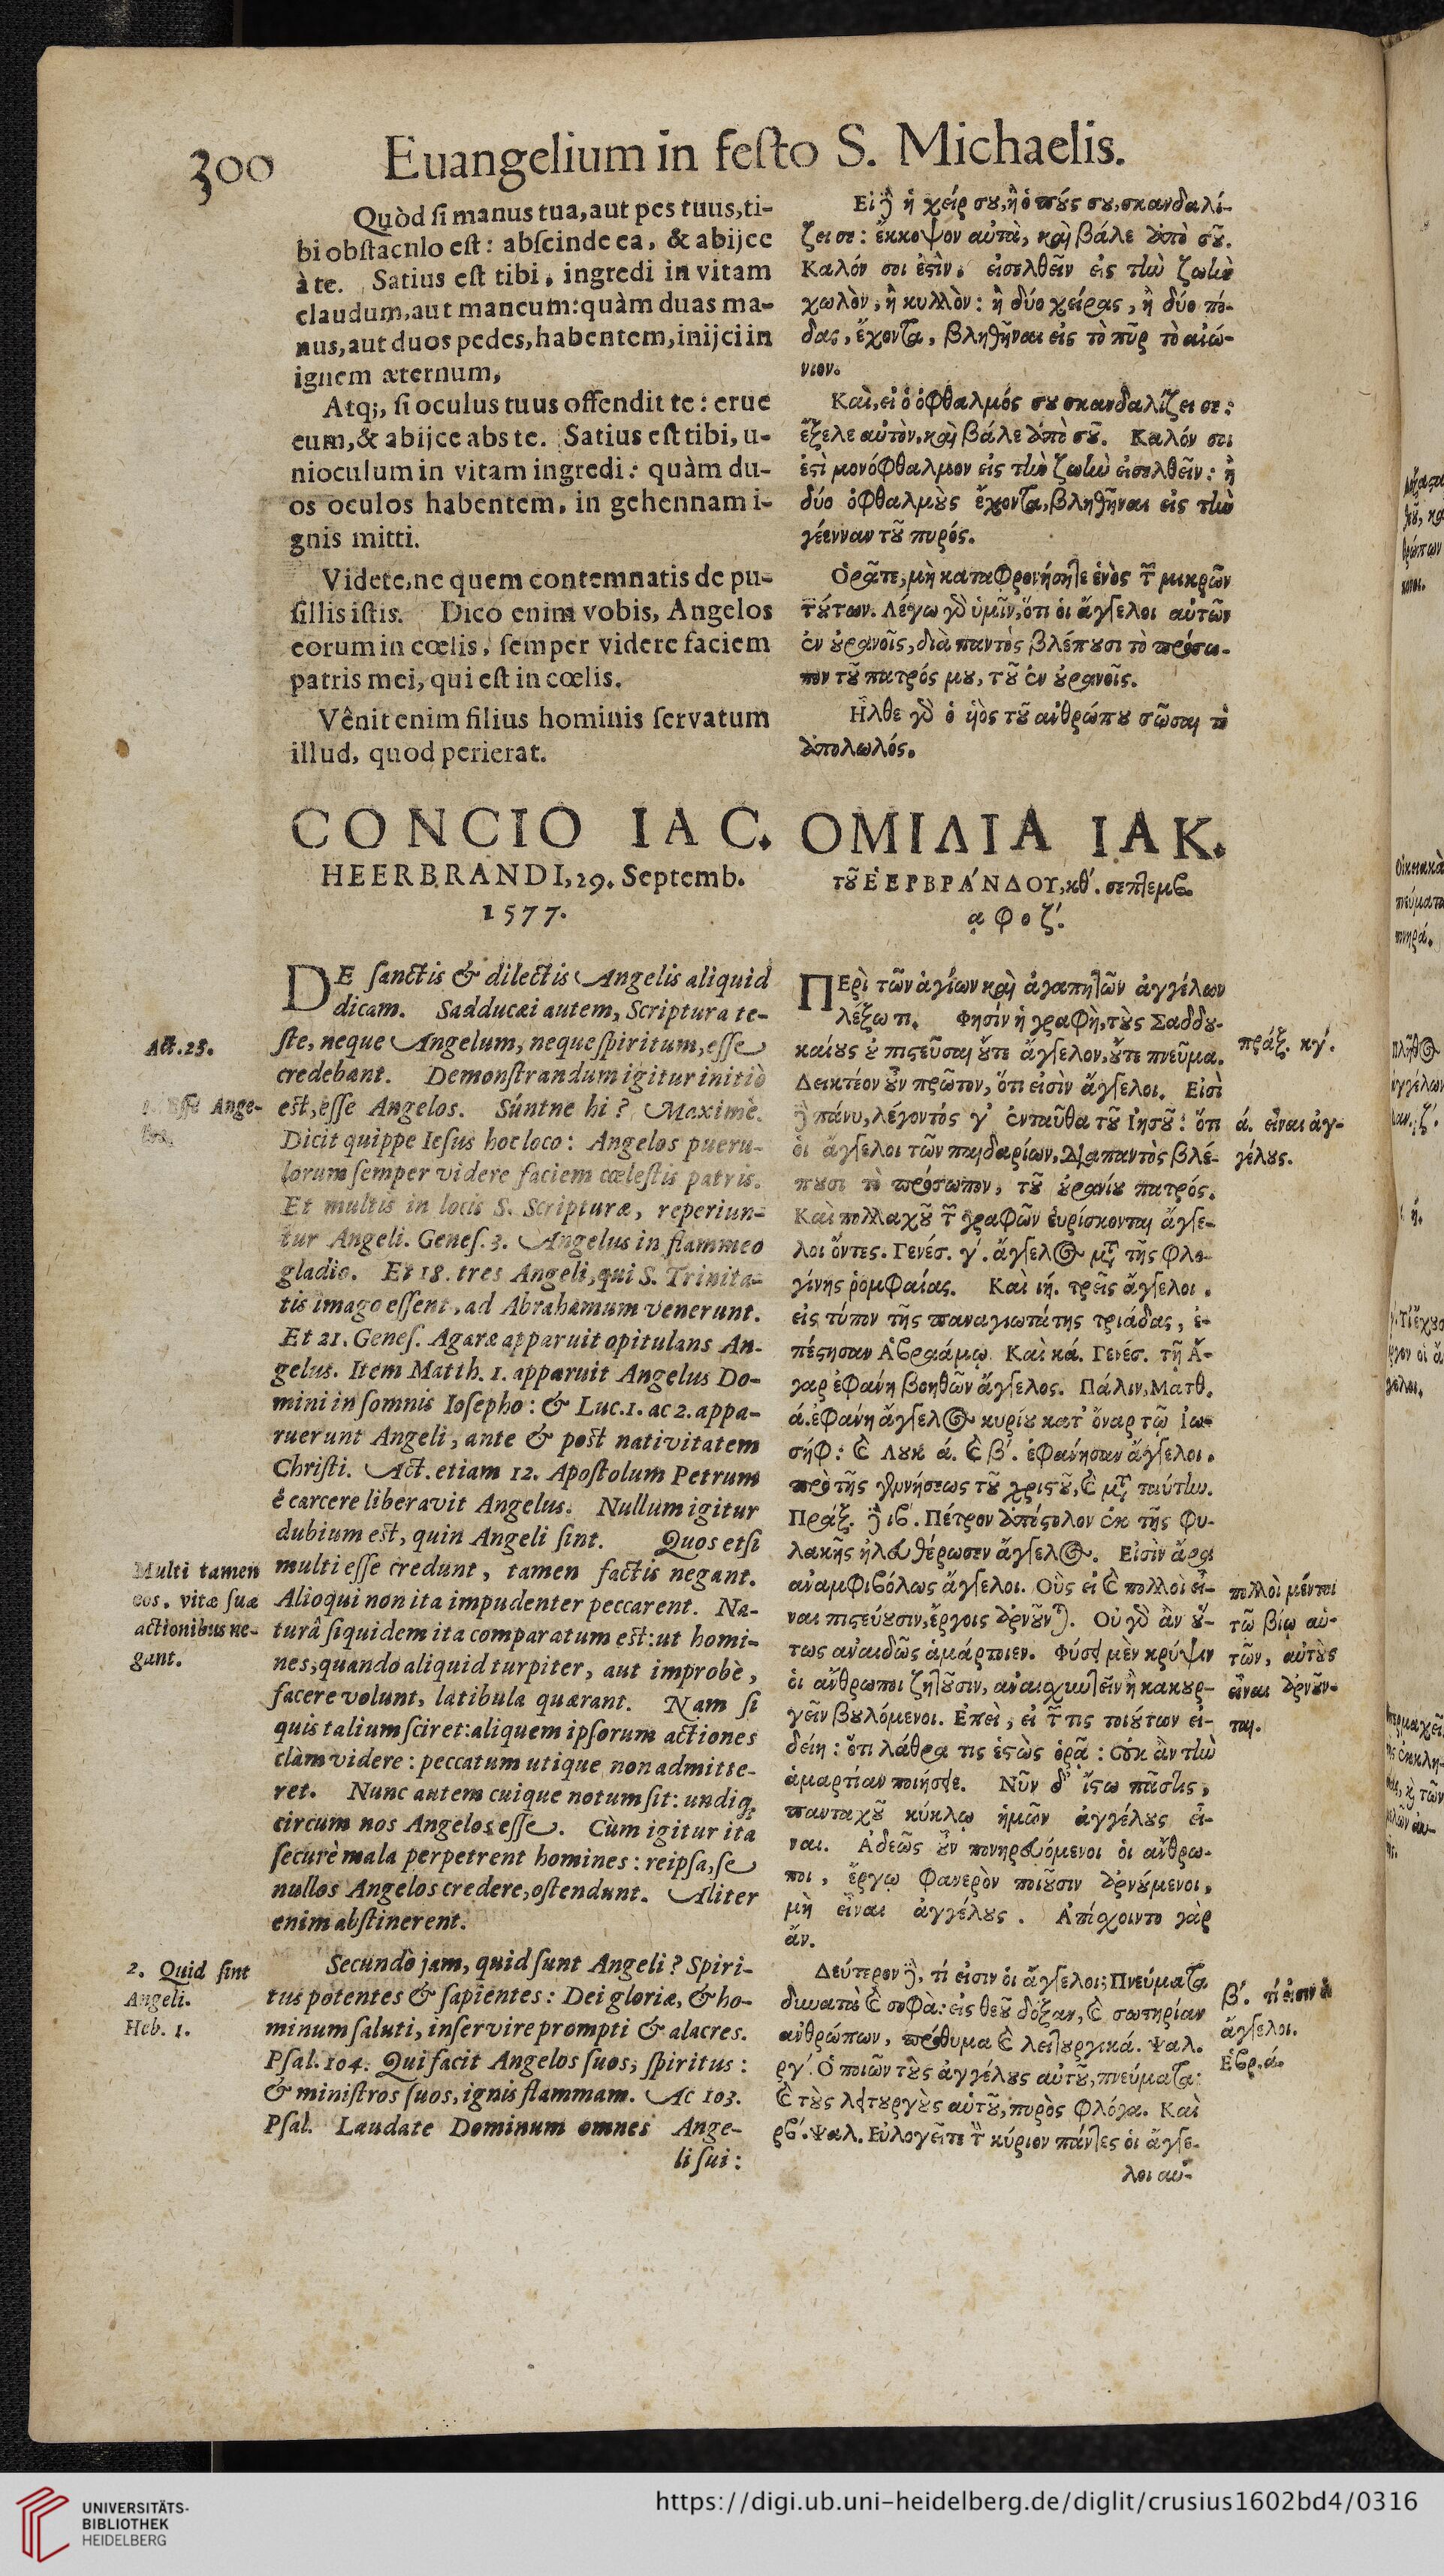 300 Euangelium in feſto S. Michaelis.
Quòd ſi manus tua, aut pes tuus, ti-
bi obſtacnlo eſt: abſcinde ea, & abijce
à te. Satius eſt tibi, ingredi in vitam
claudum, aut mancum: quàm duas ma-
nus, aut duos pedes, habentem, inijci in
ignem æternum,
Atq;, ſi oculus tuus offendit te: erue
eum, & abijce abs te. Satius eſt tibi, u-
nioculum in vitam ingredi: quàm du-
os oculos habentem, in gehennam i-
gnis mitti.
Videte, ne quem contemnatis de pu-
ſillis iſtis. Dico enim vobis, Angelos
eorum in cœlis, ſemper videre faciem
patris mei, qui eſt in cœlis.
Vênit enim filius hominis ſervatum
illud, quod perierat.
CONCIO IAC.
HEERBRANDI, 29. Septemb.
1577.
DE ſanctis & dilectis Angelis aliquid
dicam. Sadducæi autem, Scriptura te-
ſte, neque Angelum, neque ſpiritum, eſſe
credebant. Demonſtrandum igitur initiò
eſt, eſſe Angelos. Súntne hi? Maximè.
Dicit quippe Ieſus hoc loco: Angelos pueru-
lorum ſemper videre faciem cœleſtis patris.
Et multis in locis S. Scripturæ, reperiun-
tur Angeli. Geneſ. 3. Angelus in flammeo
gladio. Et 18. tres Angeli, qui S. Trinita-
tis imago eſſent, ad Abrahamum venerunt.
Et 21. Geneſ. Agaræ apparuit opitulans An-
gelus. Item Matth. 1. apparuit Angelus Do-
mini in ſomnis Ioſepho: & Luc. 1. ac 2. appa-
ruerunt Angeli, ante & poſt nativitatem
Chriſti. Act. etiam 12. Apoſtolum Petrum
è carcere liberavit Angelus. Nullum igitur
dubium eſt, quin Angeli ſint. Quos etſi
multi eſſe credunt, tamen factis negant.
Alioqui non ita impudenter peccarent. Na-
turâ ſiquidem ita comparatum eſt: ut homi-
nes, quando aliquid turpiter, aut improbè,
facere volunt, latibula quærant. Nam ſi
quis talium ſciret: aliquem ipſorum actiones
clàm videre: peccatum utique non admitte-
ret. Nunc autem cuique notum ſit: undiq;
circum nos Angelos eſſe. Cùm igitur ita
ſecurè mala perpetrent homines: reipſa, ſe
nullos Angelos credere, oſtendunt. Aliter
enim abſtinerent.
Secundò jam, quid ſunt Angeli? Spiri-
tus potentes & ſapientes: Dei gloriæ, & ho-
minum ſaluti, inſervire prompti & alacres.
Pſal. 104. Qui facit Angelos ſuos, ſpiritus:
& miniſtros ſuos, ignis flammam. Ac 103.
Pſal. Laudate Dominum omnes Ange-
li ſui:
Act. 23.
Ange-
Multi tamen
eos, vitæ ſuæ
actionibus ne-
gant.
2. Quid ſint
Angeli.
Heb. 1.
Εἰ δὲ ἡ χείρ σου, ἢ ὁ πούς σου, σκανδαλί-
ζει σε: ἔκκοψον αὐτὰ, καὶ βάλε ἀπὸ σοῦ.
Καλόν σοι ἐστὶν, εἰσελθεῖν εἰς τὴν ζωὴν
χωλὸν, ἢ κυλλὸν: ἢ δύο χεῖρας, ἢ δύο πό-
δας, ἔχοντα, βληθῆναι εἰς τὸ πῦρ τὸ αἰώ-
νιον.
Καὶ, εἰ ὁ ὀφθαλμός σου σκανδαλίζει σε:
ἔξελε αὐτὸν, καὶ βάλε ἀπὸ σοῦ. Καλόν σοι
ἐστὶ μονόφθαλμον εἰς τὴν ζωὴν εἰσελθεῖν: ἢ
δύο ὀφθαλμοὺς ἔχοντα, βληθῆναι εἰς τὴν
γέενναν τοῦ πυρός.
Ὁρᾶτε, μὴ καταφρονήσητε ἑνὸς τῶν μικρῶν
τούτων. Λέγω γὰρ ὑμῖν, ὅτι οἱ ἄγγελοι αὐτῶν
ἐν οὐρανοῖς, διὰ παντὸς βλέπουσι τὸ πρόσω-
πον τοῦ πατρός μου, τοῦ ἐν οὐρανοῖς.
Ἦλθε γὰρ ὁ υἱὸς τοῦ ἀνθρώπου σῶσαι τὸ
ἀπολωλός.
ΟΜΙΛΙΑ ΙΑΚ.
τοῦ ἙΕΡΒΡΆΝΔΟΥ, κθ΄. σεπτεμβ.
αφοζ΄.
ΠΕρὶ τῶν ἁγίων καὶ ἀγαπητῶν ἀγγέλων
λέξω τι. Φησίν ἡ γραφὴ, τοὺς Σαδδου-
καίους οὐ πιστεῦσαι οὔτε ἄγγελον, οὔτε πνεῦμα.
Δεικτέον οὖν πρῶτον, ὅτι εἰσὶν ἄγγελοι. Εἰσὶ
δὲ πάνυ, λέγοντός γ᾽ ἐνταῦθα τοῦ Ἰησοῦ: ὅτι
οἱ ἄγγελοι τῶν παιδαρίων, διαπαντὸς βλέ-
πουσι τὸ πρόσωπον, τοῦ οὐρανίου πατρός.
Καὶ πολλαχοῦ τῶν γραφῶν εὑρίσκονται ἄγγε-
λοι ὄντες. Γενέσ. γ΄. ἄγγελος μετὰ τῆς φλο-
γίνης ῥομφαίας. Καὶ ιή. τρεῖς ἄγγελοι,
εἰς τύπον τῆς παναγιωτάτης τριάδας, ἐ-
πέστησαν Ἀβραάμῳ. Καὶ κά. Γενέσ. τῇ Ἄ-
γαρ ἐφάνη βοηθῶν ἄγγελος. Πάλιν, Ματθ.
ά. ἐφάνη ἄγγελος κυρίου κατ᾽ ὄναρ τῷ Ἰω-
σήφ: καὶ Λουκ ά. καὶ β΄. ἐφάνησαν ἄγγελοι,
πρὸ τῆς γεννήσεως τοῦ χριστοῦ, καὶ μετὰ ταύτην.
Πράξ. δὲ ιβ΄. Πέτρον ἀπόστολον ἐκ τῆς φυ-
λακῆς ἠλευθέρωσεν ἄγγελος. Εἰσὶν ἄρα
ἀναμφιβόλως ἄγγελοι. Οὓς εἰ καὶ πολλοὶ εἶ-
ναι πιστεύουσιν, ἔργοις ἀρνοῦνται. Οὐ γὰρ ἂν οὕ-
τως ἀναιδῶς ἁμάρτοιεν. Φύσει μὲν κρύψιν
οἱ ἄνθρωποι ζητοῦσιν, ἀναισχυντεῖν ἢ κακουρ-
γεῖν βουλόμενοι. Ἐπεὶ, εἰ τῶν τις τοιούτων εἰ-
δείη: ὅτι λάθρα τις ἑστὼς ὁρᾷ: οὐκ ἂν τὴν
ἁμαρτίαν ποιήσειε. Νῦν δ᾽ ἴστω πᾶς τις,
πανταχοῦ κύκλῳ ἡμῶν ἀγγέλους εἶ-
ναι. Ἀδεῶς οὖν πονηρευόμενοι οἱ ἄνθρω-
ποι, ἔργῳ φανερὸν ποιοῦσιν ἀρνούμενοι,
μὴ εἶναι ἀγγέλους. Ἀπίσχοιντο γὰρ
ἄν.
Δεύτερον δὲ, τί εἰσιν οἱ ἄγγελοι; Πνεύματα
δυνατὰ καὶ σοφὰ: εἰς θεοῦ δόξαν, καὶ σωτηρίαν
ἀνθρώπων, πρόθυμα καὶ λειτουργικά. Ψαλ.
ργ΄. Ὁ ποιῶν τοὺς ἀγγέλους αὐτοῦ, πνεύματα:
καὶ τοὺς λειτουργοὺς αὐτοῦ, πυρὸς φλόγα. Καὶ
ρβ΄. Ψαλ. Εὐλογεῖτε τὸν κύριον πάντες οἱ ἄγγε-
λοι αὐ-
πράξ. κγ΄.
ά. εἶναι ἀγ-
γέλους.
πολλοὶ μέντοι
τῷ βίῳ αὐ-
τῶν, αὐτοὺς
εἶναι ἀρνοῦν-
ται.
β΄. τί εἰσιν οἱ
ἄγγελοι.
Ἑβρ. ά.
UNIVERSITÄTS-
BIBLIOTHEK
HEIDELBERG
https://digi.ub.uni-heidelberg.de/diglit/crusius1602bd4/0316